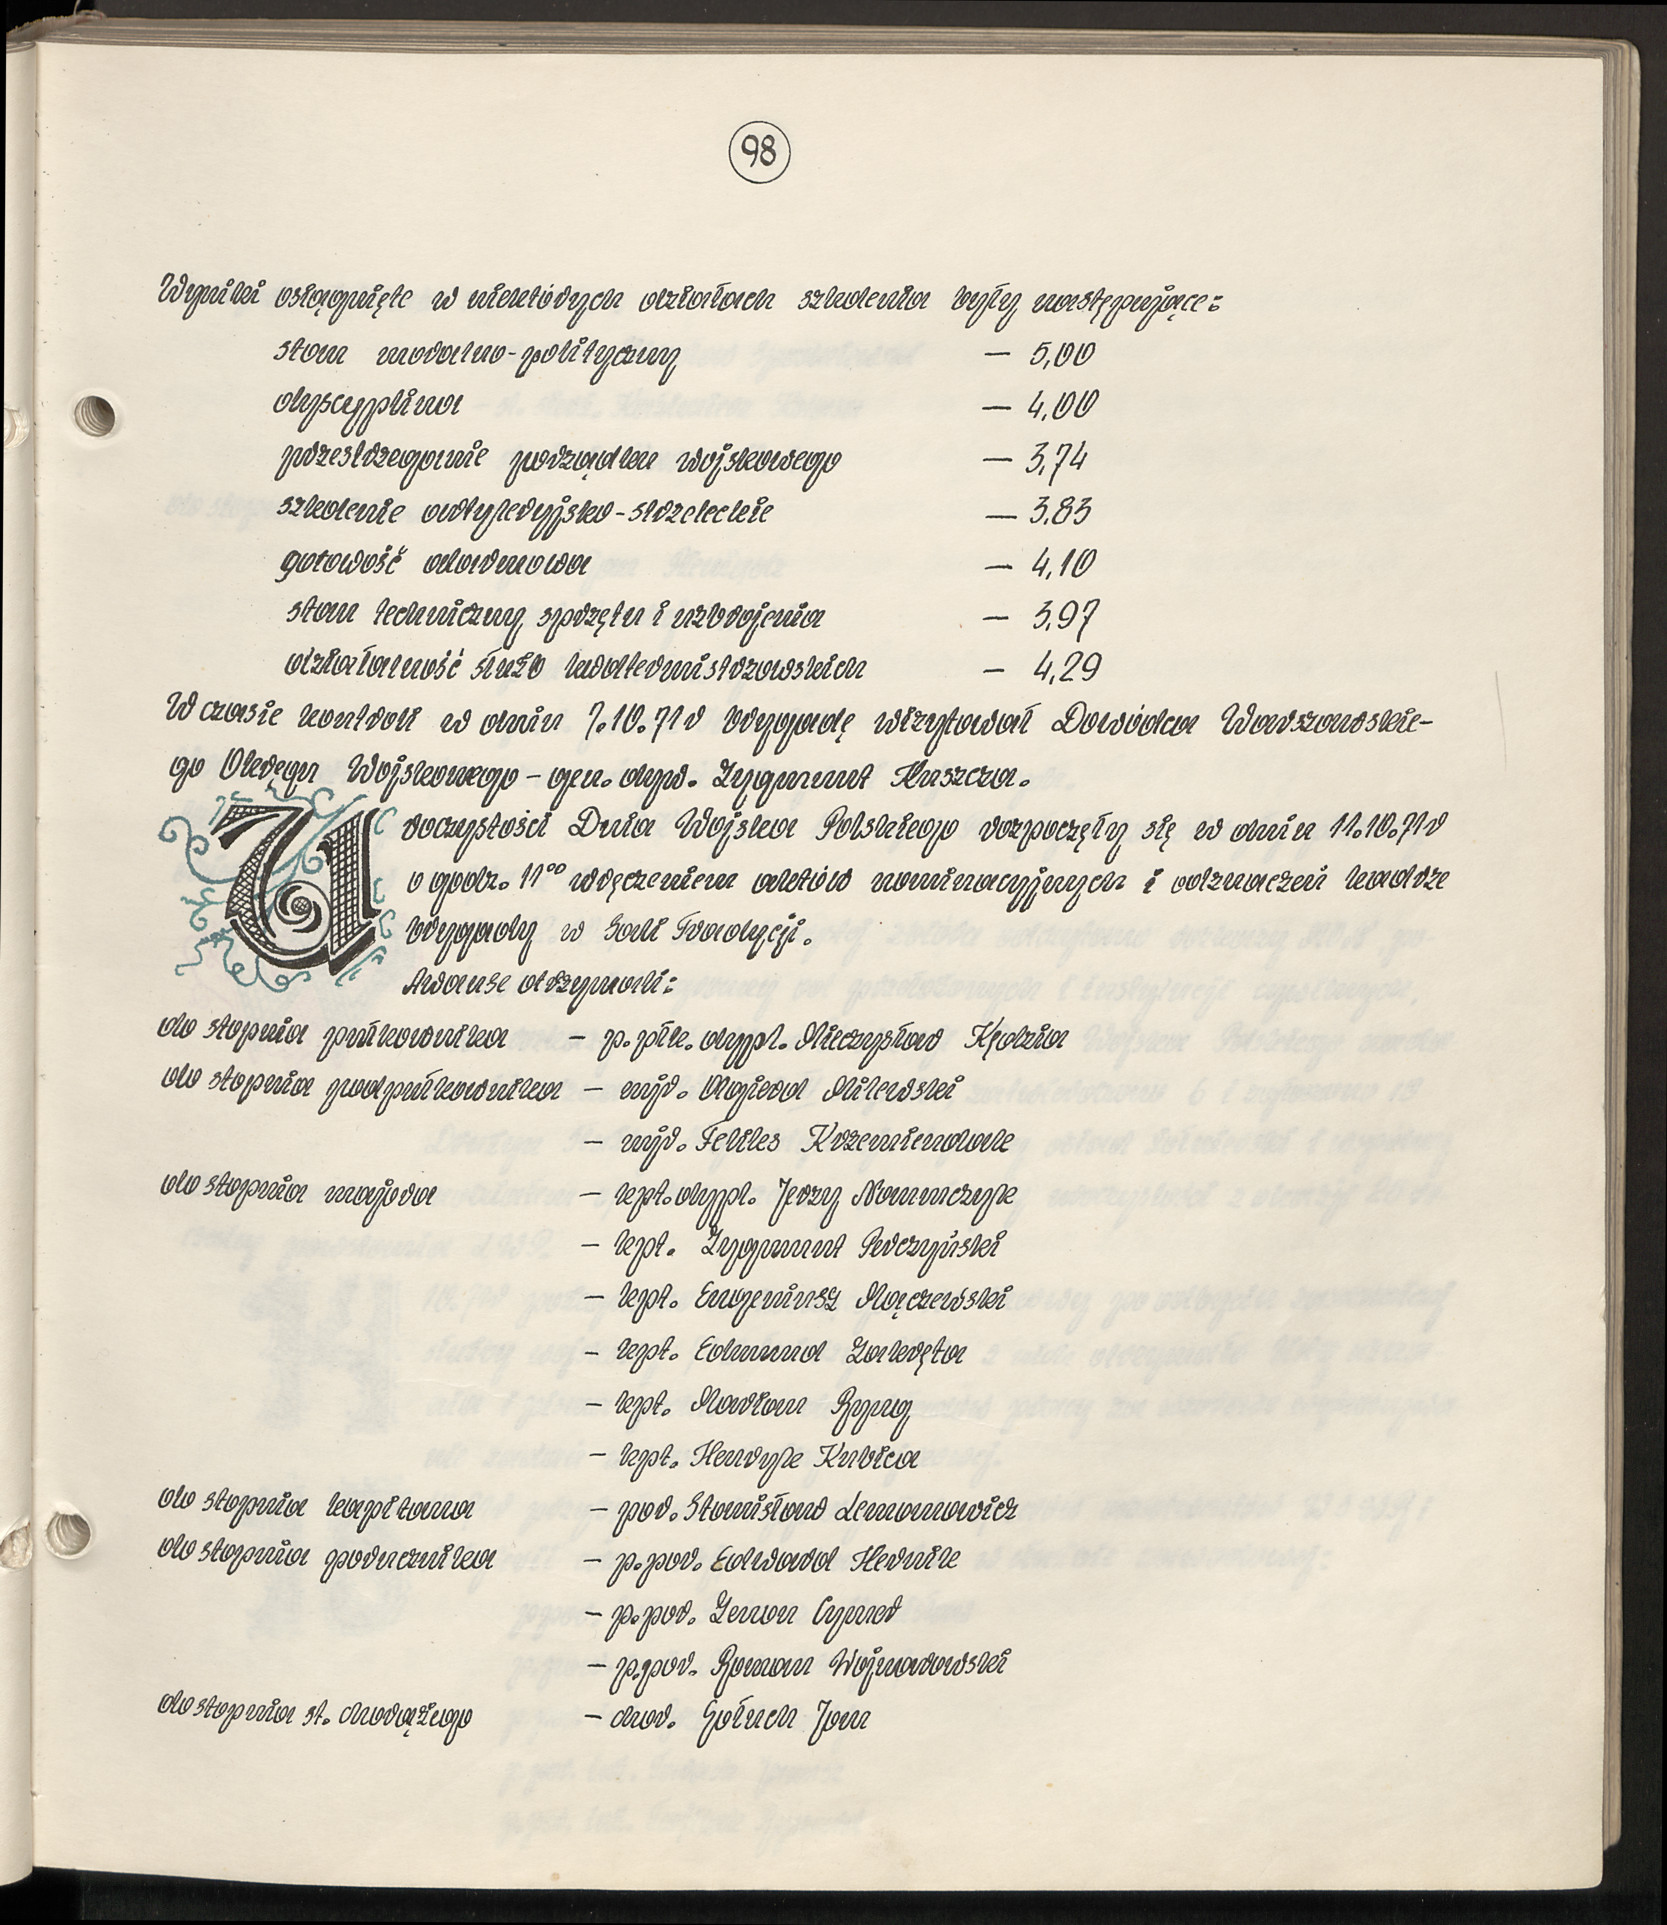 98
Wyniki osiągnięte w niektórych działach szkolenia były następujące:
stan moralno-polityczny — 5,00
dyscyplina — 4,00
przestrzeganie porządku wojskowego — 3,74
szkolenie artyleryjsko-strzeleckie — 3,83
gotowość alarmowa — 4,10
stan techniczny sprzętu i uzbrojenia — 3,97
działalność służb kwatermistrzowskich — 4,29
W czasie kontroli w dniu 7.10.71r brygadę wizytował Dowódca Warszawskie-
go Okręgu Wojskowego - gen. dyw. Zygmunt Huszcza.
Uroczystości Dnia Wojska Polskiego rozpoczęły się w dniu 11.10.71r
o godz. 11⁰⁰ wręczeniem aktów nominacyjnych i odznaczeń kadrze
brygady w Sali Tradycji.
Awanse otrzymali:
do stopnia pułkownika — p.płk. dypl. Mieczysław Kędzia
do stopnia podpułkownika — mjr. Olgierd Milewski
— mjr. Feliks Krzemiendak
do stopnia majora — kpt. dypl. Jerzy Naumczyk
— kpt. Zygmunt Perczyński
— kpt. Eugeniusz Mączewski
— kpt. Edmund Zakręta
— kpt. Marian Ryng
— kpt. Henryk Kubica
do stopnia kapitana — por. Stanisław Lemanowicz
do stopnia porucznika — p.por. Edward Hernik
— p.por. Zenon Cymer
— p.por. Roman Wojnarowski
do stopnia st. chorążego — chor. Gołuch Jan